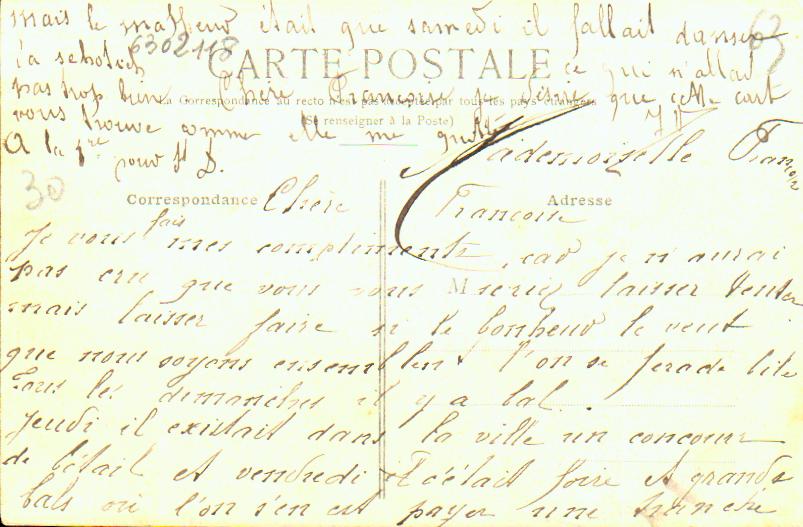 mais le malheur était que samedi il fallait danser
la schotich ce qui n'allait
6302118
63
CARTE POSTALE
pas trop bien Chère Françoise je désire que cette cart
La Correspondance au recto n'est pas acceptée par tous les pays étrangers
(Se renseigner à la Poste)
vous trouve comme elle me quitte
A la 1re pour
Mademoiselle
30
Correspondance
Adresse
Chère Francoise
Je vous fais mes compliments, car je n'aurai
pas cru que vous vous M seriez laisser tenter
mais laisser faire si le bonheur le veut
que nous soyons ensemble l'on se ferade bile
Tous les dimanches il y a bal.
Jeudi il existait dans la ville un concour
de bétail et vendredi c'était foire et grands
bals où l'on s'en est payer une tranche